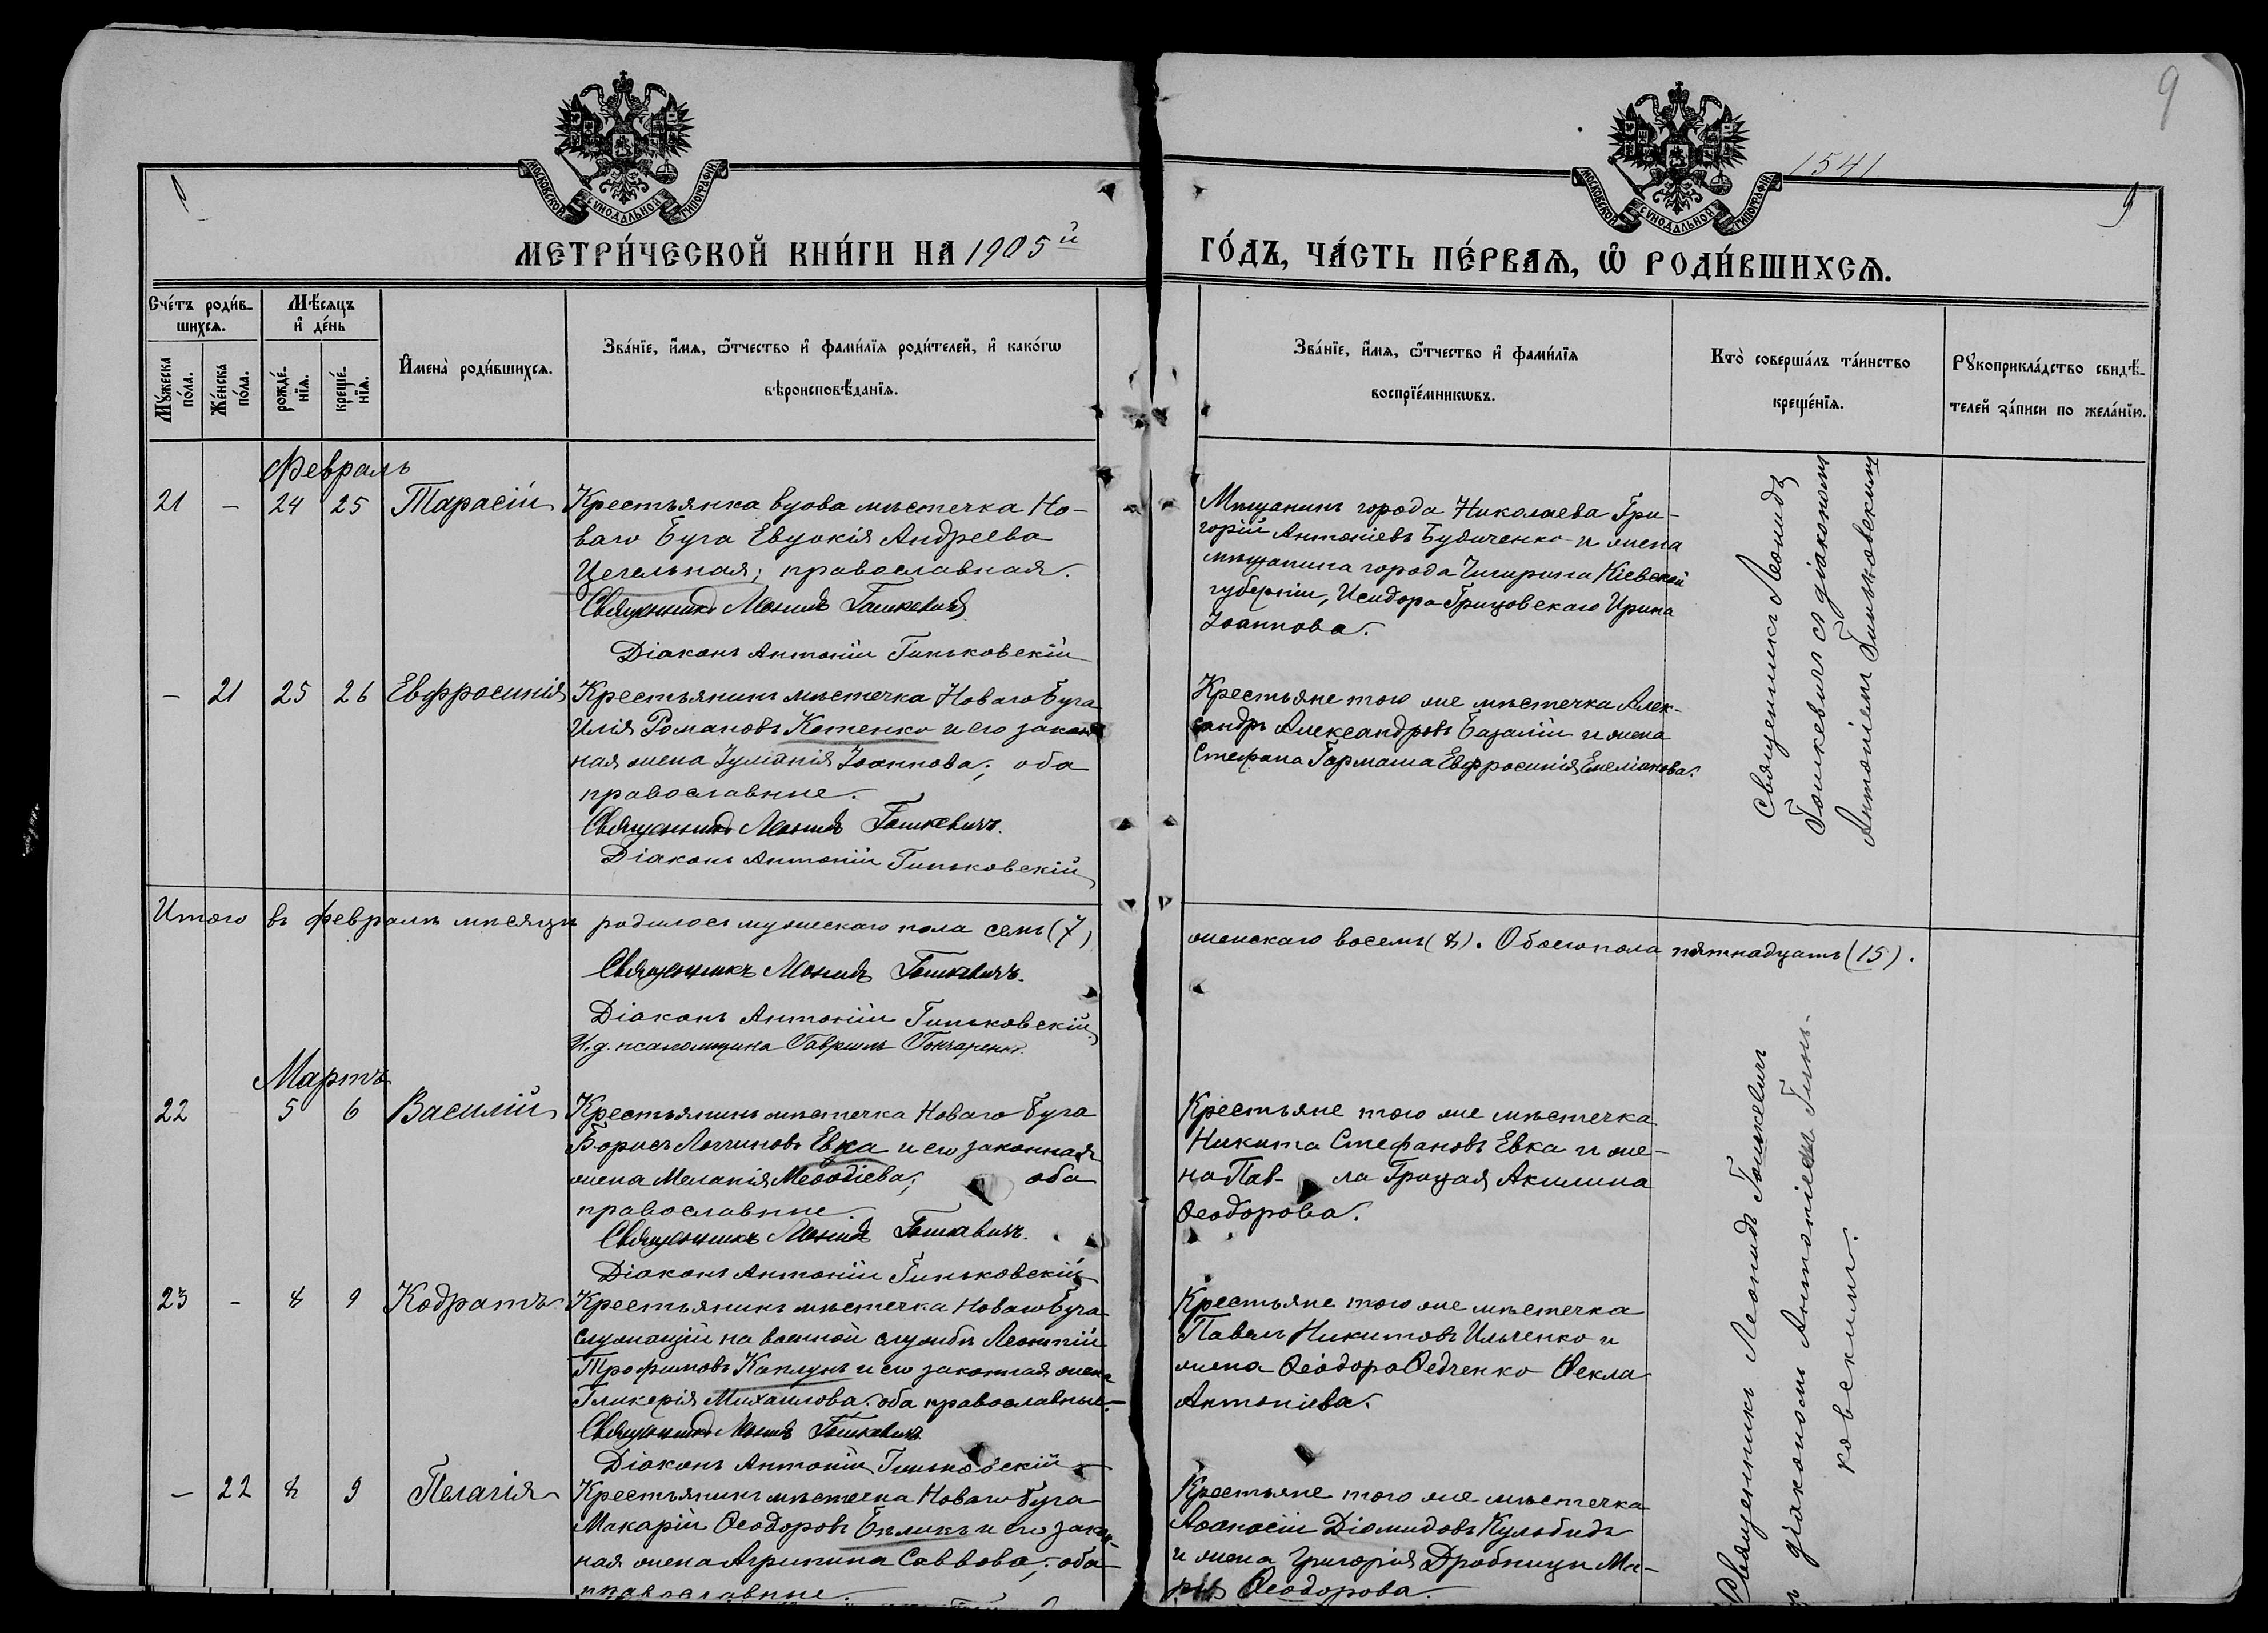 9
1541
9
МОСКОВСКОЙ СѴНОДАЛЬНОЙ ТИПОГРАФІИ
МОСКОВСКОЙ СѴНОДАЛЬНОЙ ТИПОГРАФІИ
МЕТРИ́ЧЕСКОЙ КНИ́ГИ НА 1905й
ГО́ДЪ, ЧА́СТЬ ПЕ́РВАѦ, Ѡ҆ РОДИ́ВШИХСѦ.
Сче́тъ роди́в-
шихсѧ.
Мꙋ́жеска по́ла.
Же́нска по́ла.
Мѣ́сѧцъ
и҆ де́нь
рожде́-нїѧ.
креще́-нїѧ.
И҆мена̀ роди́вшихсѧ.
Зва́нїе, и҆́мѧ, ѻ҆́тчество и҆ фами́лїѧ роди́телей, и҆ како́гѡ
вѣроисповѣ́данїѧ.
Зва́нїе, и҆́мѧ, ѻ҆́тчество и҆ фами́лїѧ
воспрїе́мникѡвъ.
Кто̀ соверша́лъ та́инство
креще́нїѧ.
Рꙋкоприкла́дство свидѣ́-
телей за́писи по жела́нїю.
Февраль
21 - 24 25 Тарасій
Крестьянка вдова мѣстечка Но-
ваго Буга Евдокія Андреева
Цегельная; православная.
Священникъ Леонидъ Гошкевичъ
Діаконъ Антоній Гиньковскій
Мѣщанинъ города Николаева Гри-
горій Антоніевъ Будиченко и жена
мѣщанина города Чигирина Кіевской
губерніи, Исидора Грицовскаго Ирина
Іоаннова.
Священникъ Леонидъ
Гошкевичъ съ діакономъ
Антоніемъ Гиньковскимъ
- 21 25 26 Евфросинія
Крестьянинъ мѣстечка Новаго Буга
Илія Романовъ Котенко и его закон
ная жена Іуліанія Іоаннова; оба
православные.
Священникъ Леонидъ Гошкевичъ.
Діаконъ Антоній Гиньковскій
Крестьяне того же мѣстечка Алек-
сандръ Александровъ Базалій и жена
Стефана Гармаша Евфросинія Емеліанова.
Итого въ февралѣ мѣсяцѣ родилось мужескаго пола семь (7)
женскаго восемь (8). Обоего пола пятнадцать (15).
Священникъ Леонидъ Гошкевичъ.
Діаконъ Антоній Гиньковскій
И.д. псаломщика Гавріилъ Гончаренко.
Мартъ
22 5 6 Василій
Крестьянинъ мѣстечка Новаго Буга
Борисъ Логгиновъ Евка и его законная
жена Меланія Меѳодіева; оба
православные
Священникъ Леонидъ Гошкевичъ.
Діаконъ Антоній Гиньковскій
Крестьяне того же мѣстечка
Никита Стефановъ Евка и же-
на Пав- ла Грицая Акилина
Ѳеодорова.
23 - 8 9 Кодратъ
Крестьянинъ мѣстечка Новаго Буга
служащій на военной службѣ Леонтій
Трофимовъ Каплунъ и его законная жена
Гликерія Михаилова. оба православные.
Священникъ Леонидъ Гошкевичъ
Діаконъ Антоній Гиньковскій
Крестьяне того же мѣстечка
Павелъ Никитовъ Ильченко и
жена Ѳеодора Ѳедченко Ѳекла
Антоніева.
- 22 8 9 Пелагія
Крестьянинъ мѣстечка Новаго Буга
Макарій Ѳеодоровъ Бѣликъ и его закон-
ная жена Агрипина Саввова; оба
православные.
Крестьяне того же мѣстечка
Аѳанасій Діомидовъ Кулобидъ
и жена Григорія Дробницы Ма-
рія Ѳеодорова.
Священникъ Леонидъ Гошкевичъ
съ діакономъ Антоніемъ Гинь-
ковскимъ.